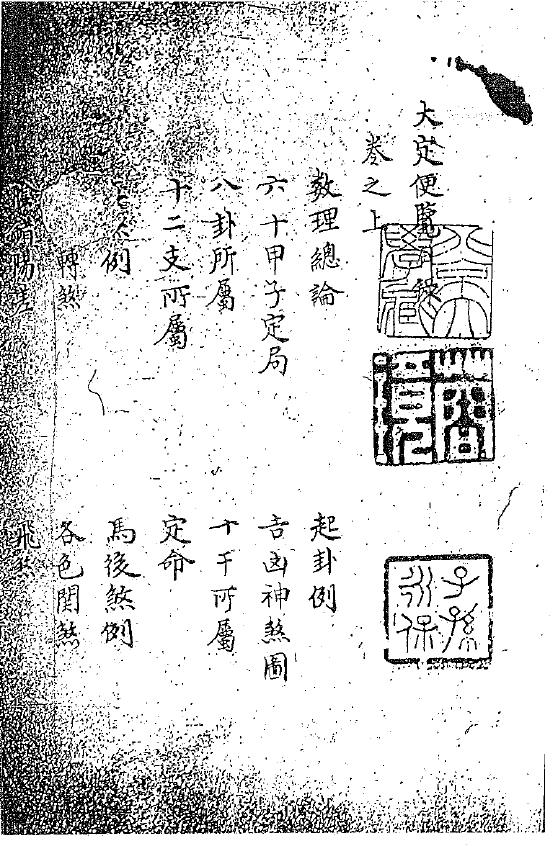 大定便覧目錄
卷之上
數理總論
起卦例
六十甲子定局
吉凶神煞圖
八卦所屬
十干所屬
十二支所屬
定命
例
馬後煞例
轉煞
各色關煞
飛煞
子孫永保